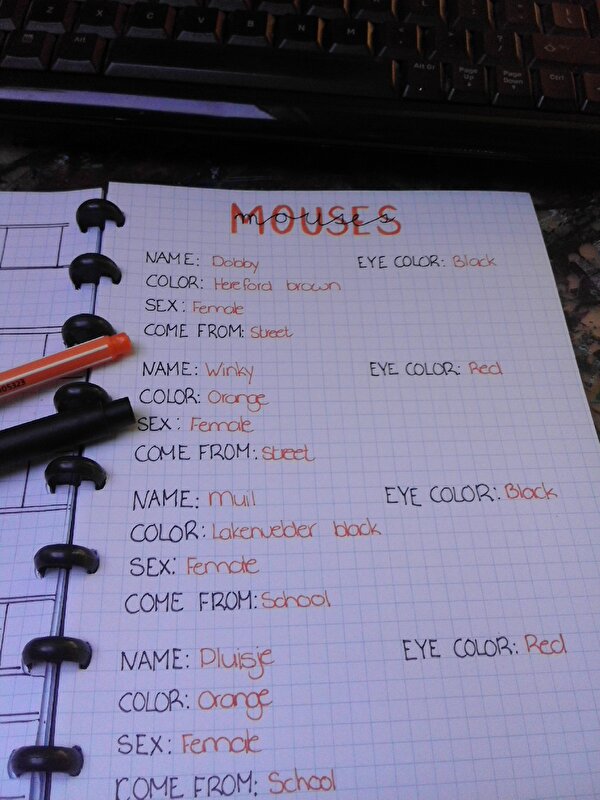 Z X C V B N M
Alt
Alt Gr
Page Up
Page Down
Ctrl
MOUSES
mouses
NAME: Dobby EYE COLOR: Black
COLOR: Hereford brown
SEX: Female
COME FROM: Street
NAME: Winky EYE COLOR: Red
COLOR: Orange
SEX: Female
COME FROM: Street
NAME: Muil EYE COLOR: Black
COLOR: Lakenvelder black
SEX: Female
COME FROM: School
NAME: Pluisje EYE COLOR: Red
COLOR: Orange
SEX: Female
COME FROM: School